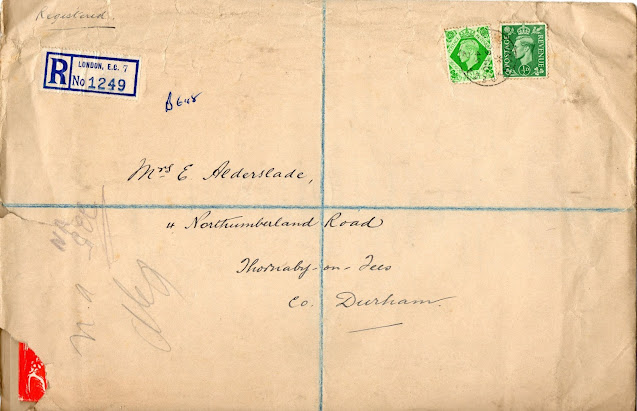 Registered
R LONDON, E.C. 7
No 1249
POSTAGE REVENUE
B648
Mrs E Alderslade,
4 Northumberland Road
Thornaby-on-Tees
Co. Durham.
n.a